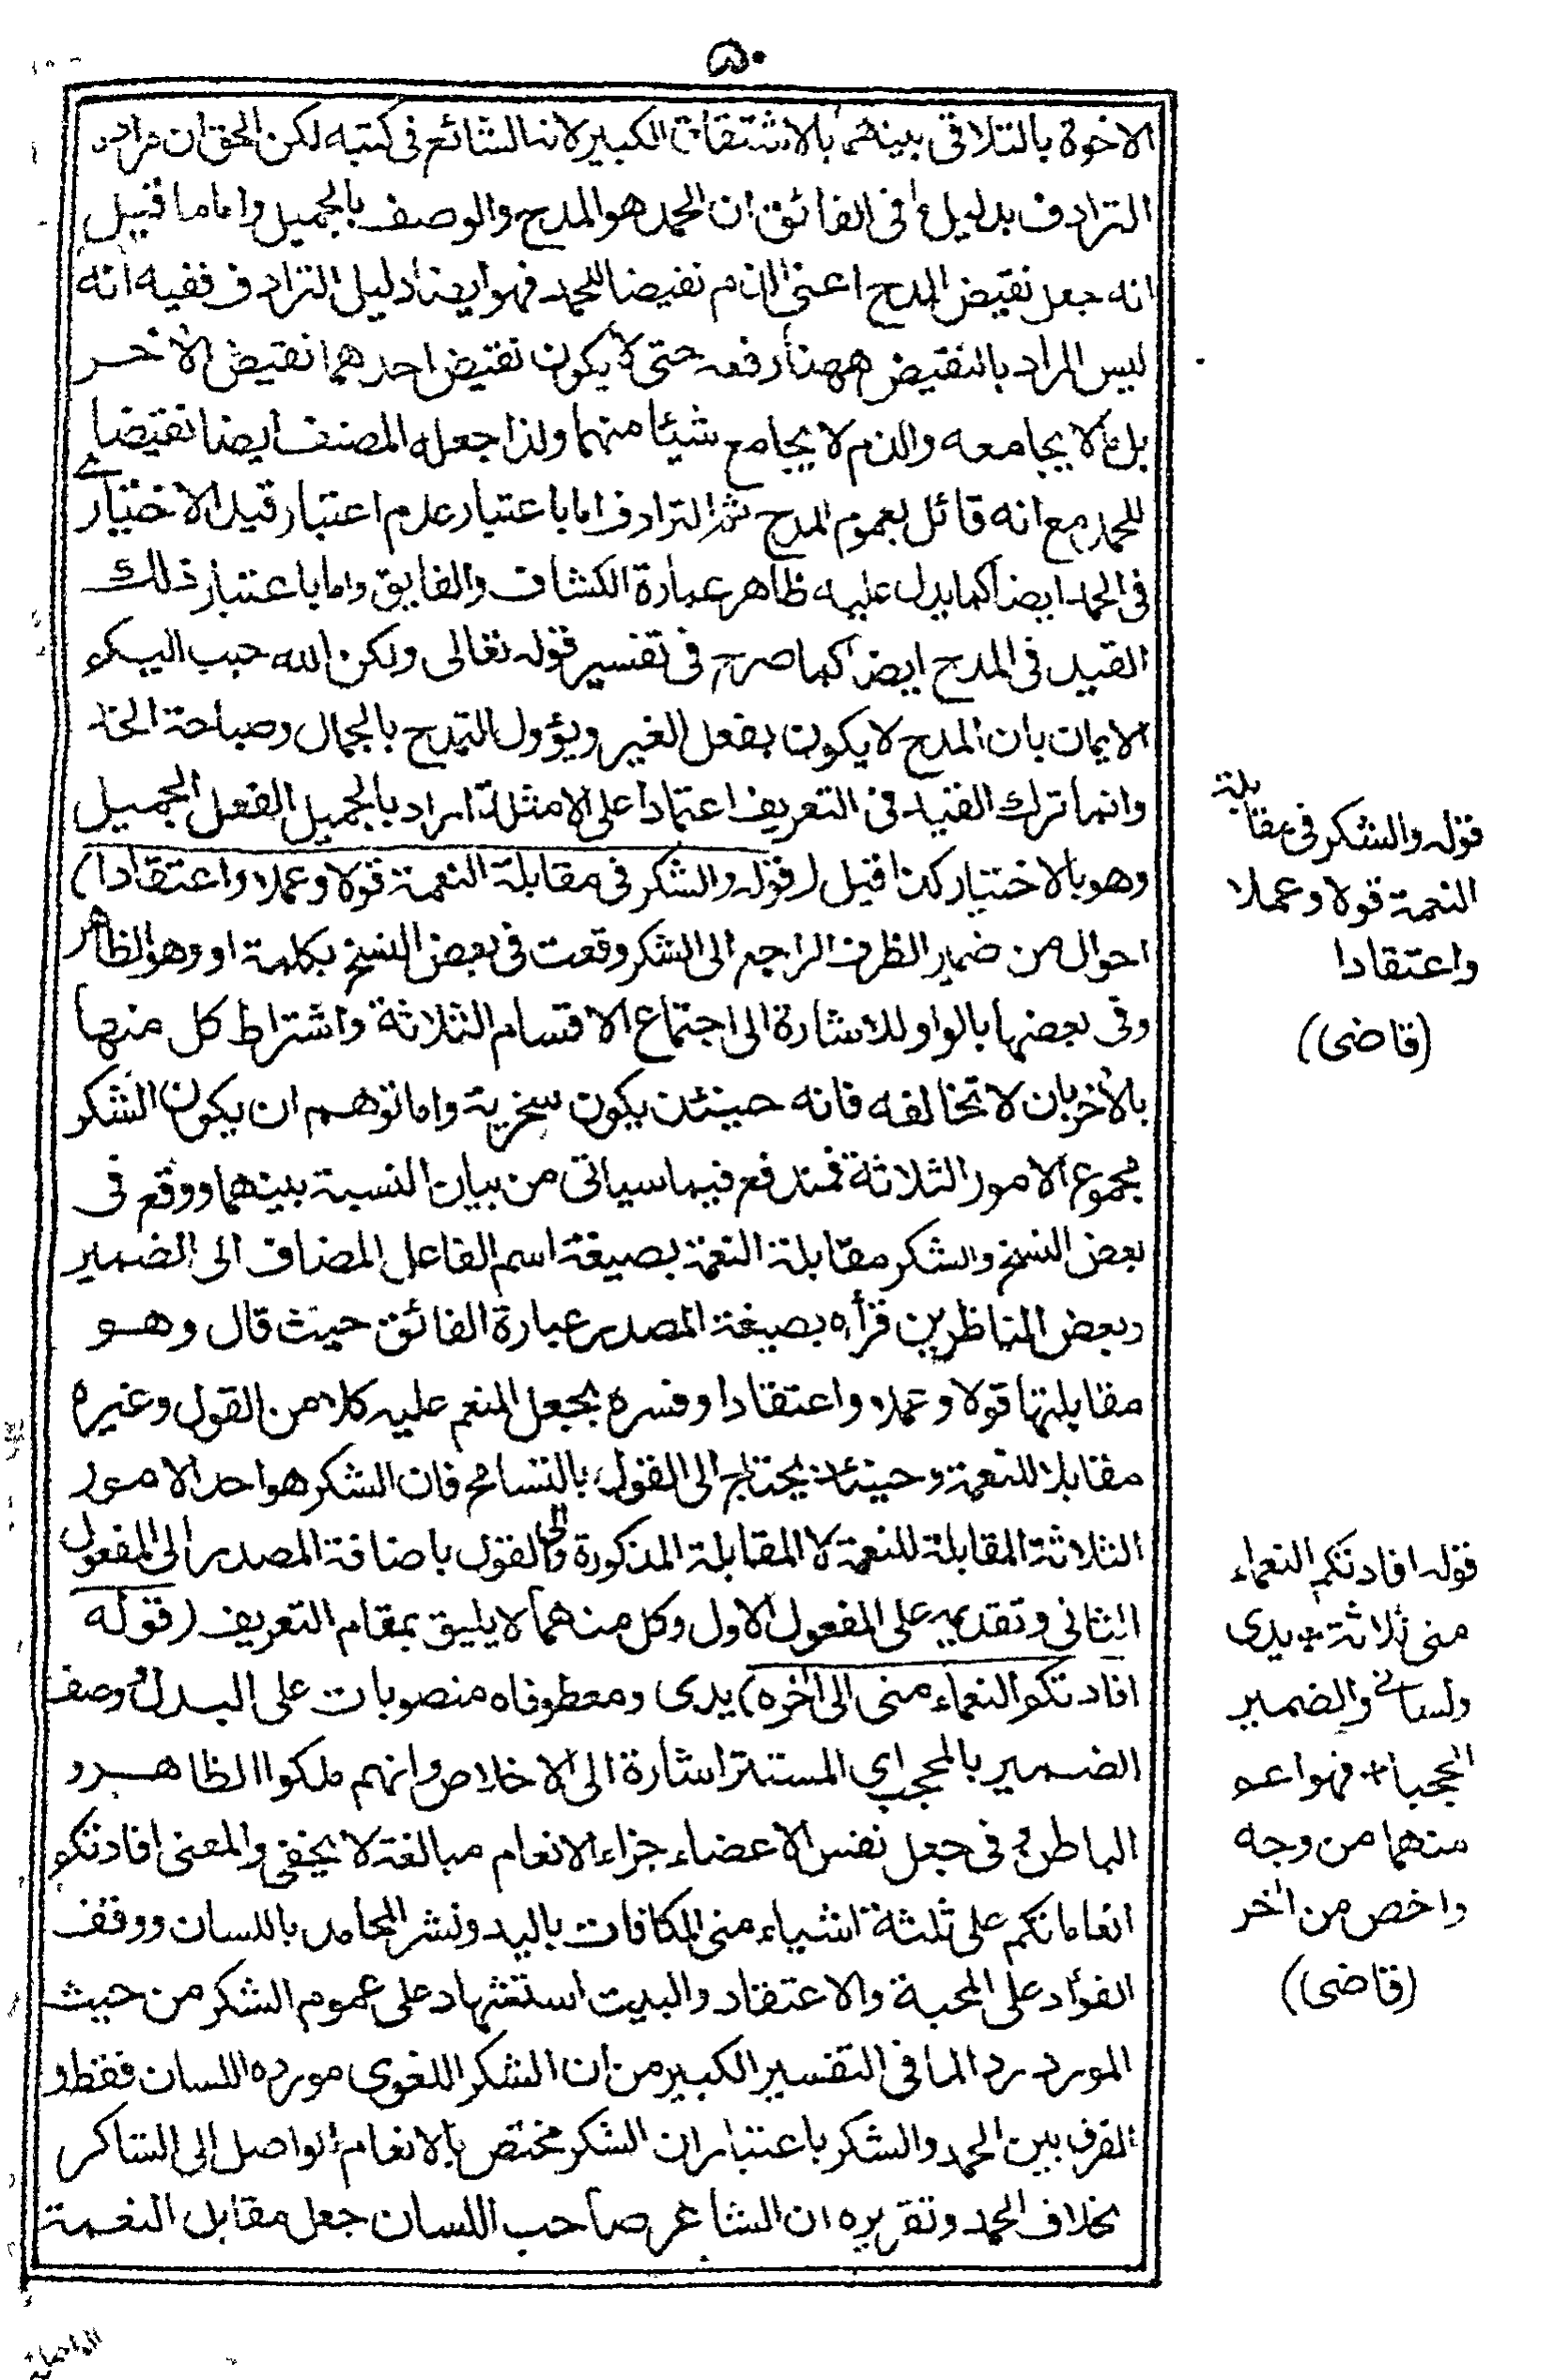 ٥٠
الاخوة بالتلاقى بينهما بالاشتقاق الكبير لانه الشائع فى كتبه لكن الحق ان مراده
الترادف بدليل ما فى الفائق ان الحمد هو المدح والوصف بالجميل واما ما قيل
انه جعل نقيض المدح اعنى الذم نقيضا للحمد فهو ايضا دليل الترادف ففيه انه
ليس المراد بالنقيض ههنا رفعه حتى لا يكون نقيض احدهما نقيض الاخر
بل ما لا يجامعه والذم لا يجامع شيئا منهما ولذا جعله المصنف ايضا نقيضا
للحمد مع انه قائل بعموم المدح ثم الترادف اما باعتبار عدم اعتبار قيد الاختيارے
فى الحمد ايضا كما يدل عليه ظاهر عبارة الكشاف والفايق واما باعتبار ذلك
القيد فى المدح ايضا كما صرح فى تفسير قوله تعالى ولكن الله حبب اليكم
الايمان بان المدح لا يكون بفعل الغير ويؤول التمدح بالجمال وصباحة الخد
وانما ترك القيد فى التعريف اعتمادا على الامثلة اراد بالجميل الفعل الجميل
وهو بالاختيار كذا قيل (قوله والشكر فى مقابلة النعمة قولا وعملا واعتقادا)
احوال من ضمير الظرف الراجع الى الشكر وقعت فى بعض النسخ بكلمة او وهو الظاهر
وفى بعضها بالواو للاشارة الى اجتماع الاقسام الثلاثة واشتراط كل منها
بالاخر بان لا تخالفه فانه حينئذ يكون سخرية واما توهم ان يكون الشكر
مجموع الامور الثلاثة فمندفع فيما سياتى من بيان النسبة بينهما ووقع فى
بعض النسخ والشكر مقابلة النعمة بصيغة اسم الفاعل المضاف الى الضمير
وبعض الناظرين قرأه بصيغة المصدر عبارة الفائق حيث قال وهو
مقابلتها قولا وعملا واعتقادا وفسره بجعل المنعم عليه كلا من القول وغيره
مقابلا للنعمة وحينئذ يحتاج الى القول بالتسامح فان الشكر هو احد الامور
الثلاثة المقابلة للنعمة لا المقابلة المذكورة والى القول باضافة المصدر الى المفعول
الثانى وتقديمه على المفعول الاول وكل منهما لا يليق بمقام التعريف (قوله
افادتكم النعماء منى الى اخره) يدى ومعطوفاه منصوبات على البدل ووصف
الضمير بالمحجب اى المستتر اشارة الى الاخلاص وانهم ملكوا الظاهر و
الباطن و فى جعل نفس الاعضاء جزاء الانعام مبالغة لا يخفى والمعنى افادتكم
انعاماتكم على ثلثة اشياء منى المكافات باليد ونشر المحامد باللسان ووقف
الفؤاد على المحبة والاعتقاد والبيت استشهاد على عموم الشكر من حيث
المورد رد الما فى التفسير الكبير من ان الشكر اللغوى مورده اللسان فقط و
الفرق بين الحمد والشكر باعتبار ان الشكر مختص بالانعام الواصل الى الشاكر
بخلاف الحمد وتقريره ان الشاعر صاحب اللسان جعل مقابل النعمة
قوله والشكر فى مقابلة
النعمة قولا وعملا
واعتقادا
(قاضى)
قوله افادتكم النعماء
منى ثلاثة * يدى
ولسانى والضمير
المحجبا * فهو اعم
منهما من وجه
واخص من اخر
(قاضى)